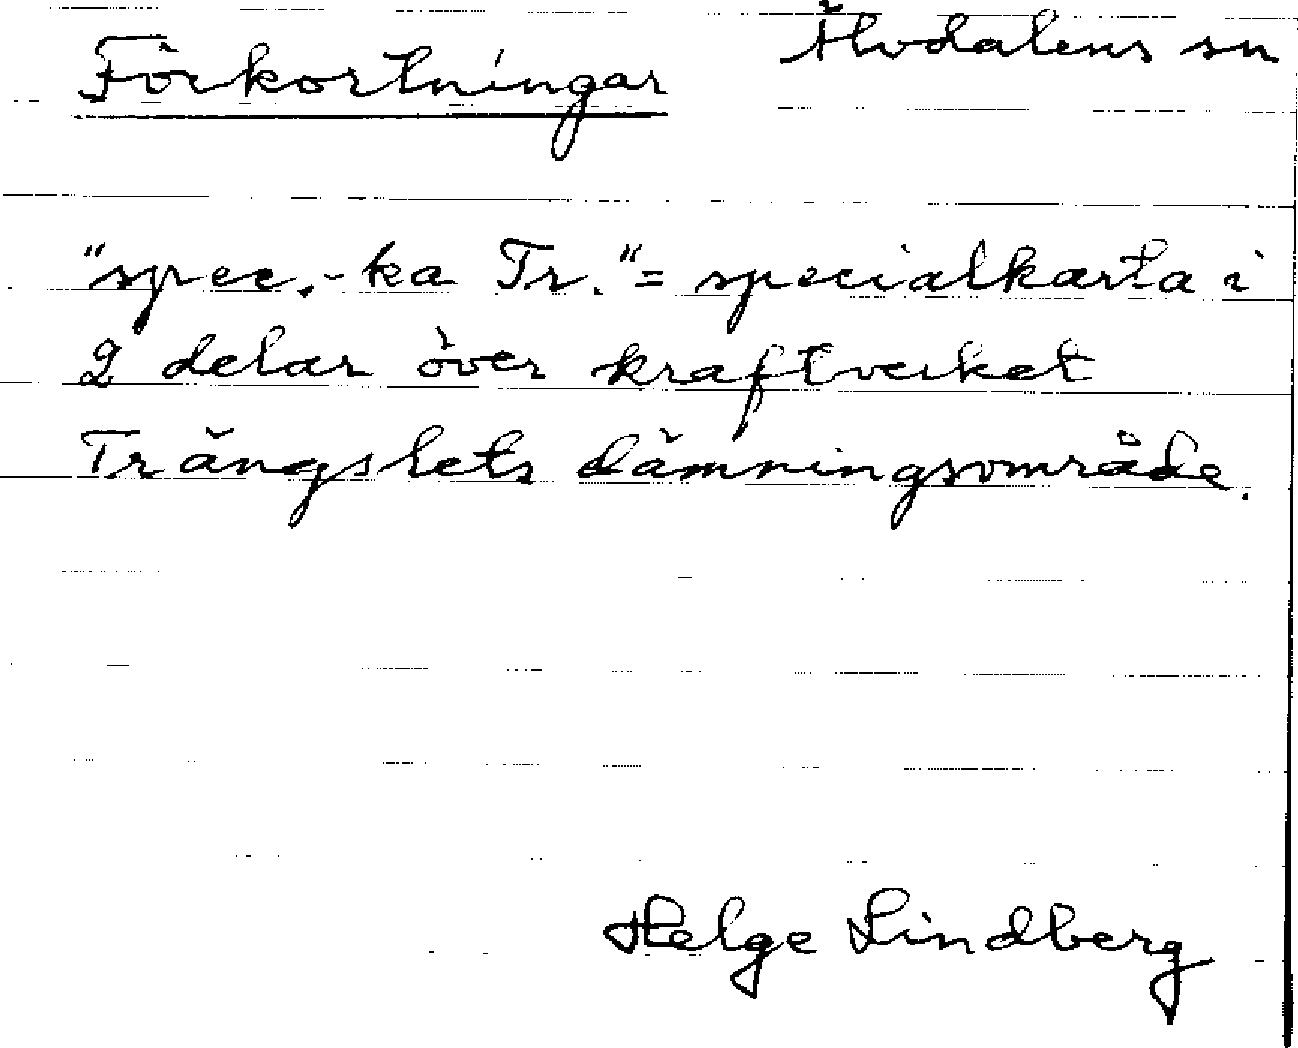 Förkortningar
Älvdalens sn
"spec.-ka Tr." = specialkarta i
2 delar över kraftverket
Trängslets dämningsområde.
Helge Lindberg